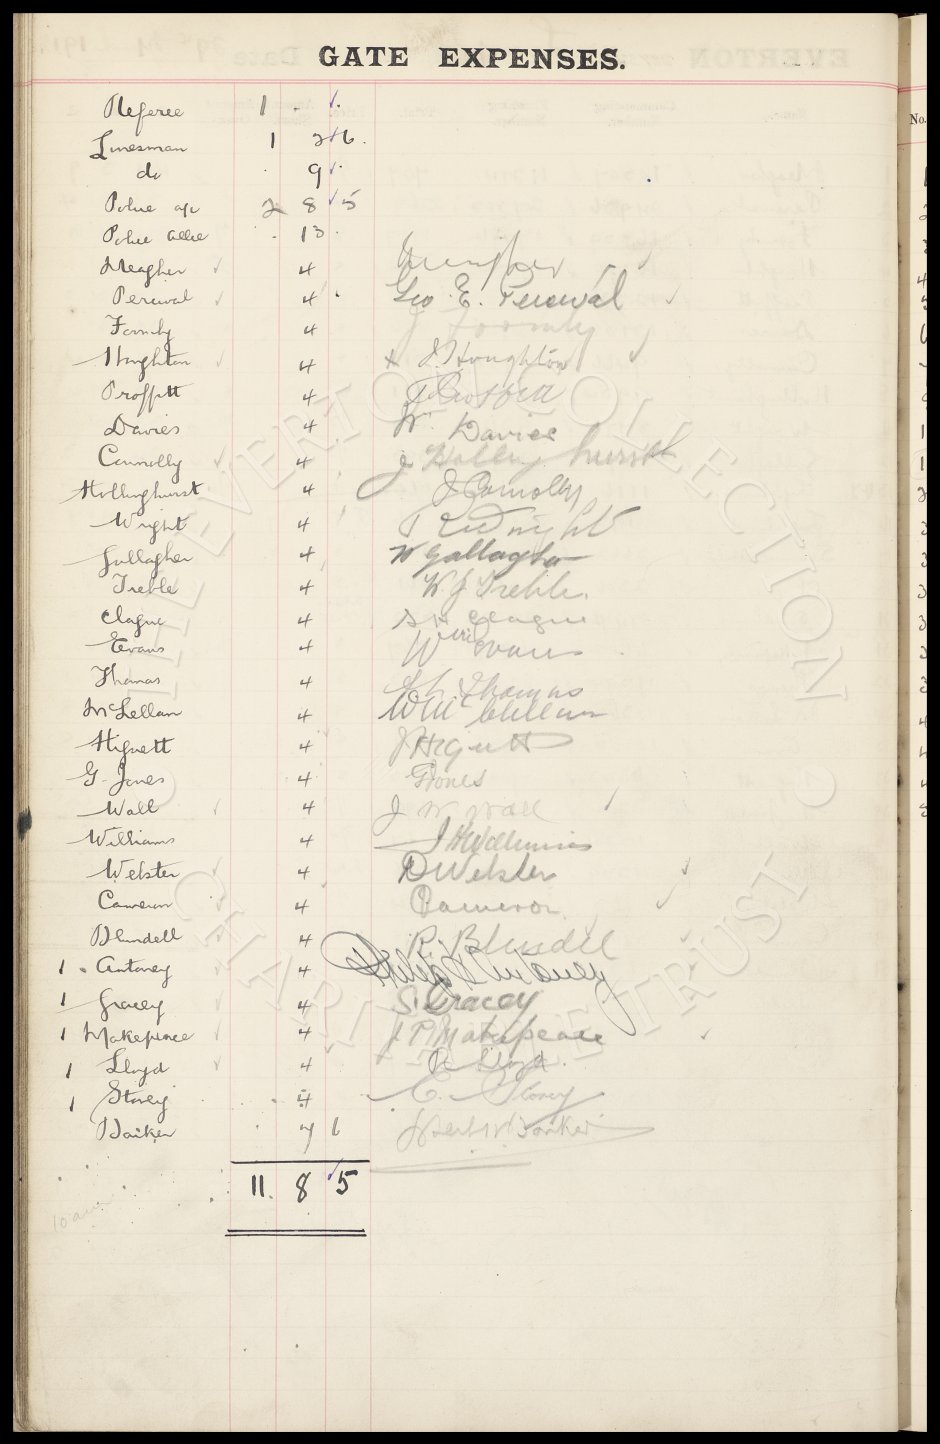 GATE EXPENSES.
Referee 1 . .
Linesman 1 2 6.
do . 9 .
Police a/c 2 8 5
Police . 13 .
Meagher 4
Percival 4 Geo. E. Percival
Formby 4 J Formby
Houghton 4 x J. Houghton
Proffitt 4
Davies 4 W. Davies
Connolly 4 J Hollinghurst
Hollinghurst 4 J Connolly
Wright 4 Wright
Gallagher 4 W Gallagher
Treble 4 W. J Treble.
Clague 4 Clague
Evans 4 W Evans
Thomas 4 Thomas
McLellan 4 W McLellan
Hignett 4 J Hignett
G. Jones 4 G Jones
Wall 4 J W Wall
Williams 4 J H Williams
Webster 4 D Webster
Cameron 4 Cameron
Blundell 4 R. Blundell
1 Antoney 4 Philip Antoney
1 Gracey 4 S. Gracey
1 Makepeace 4 J P Makepeace
1 Lloyd 4 R Lloyd.
1 Storey 4 E. Storey
Barker 7 6 Barker
11. 8 5
THE EVERTON COLLECTION
© CHARITABLE TRUST ©
No.